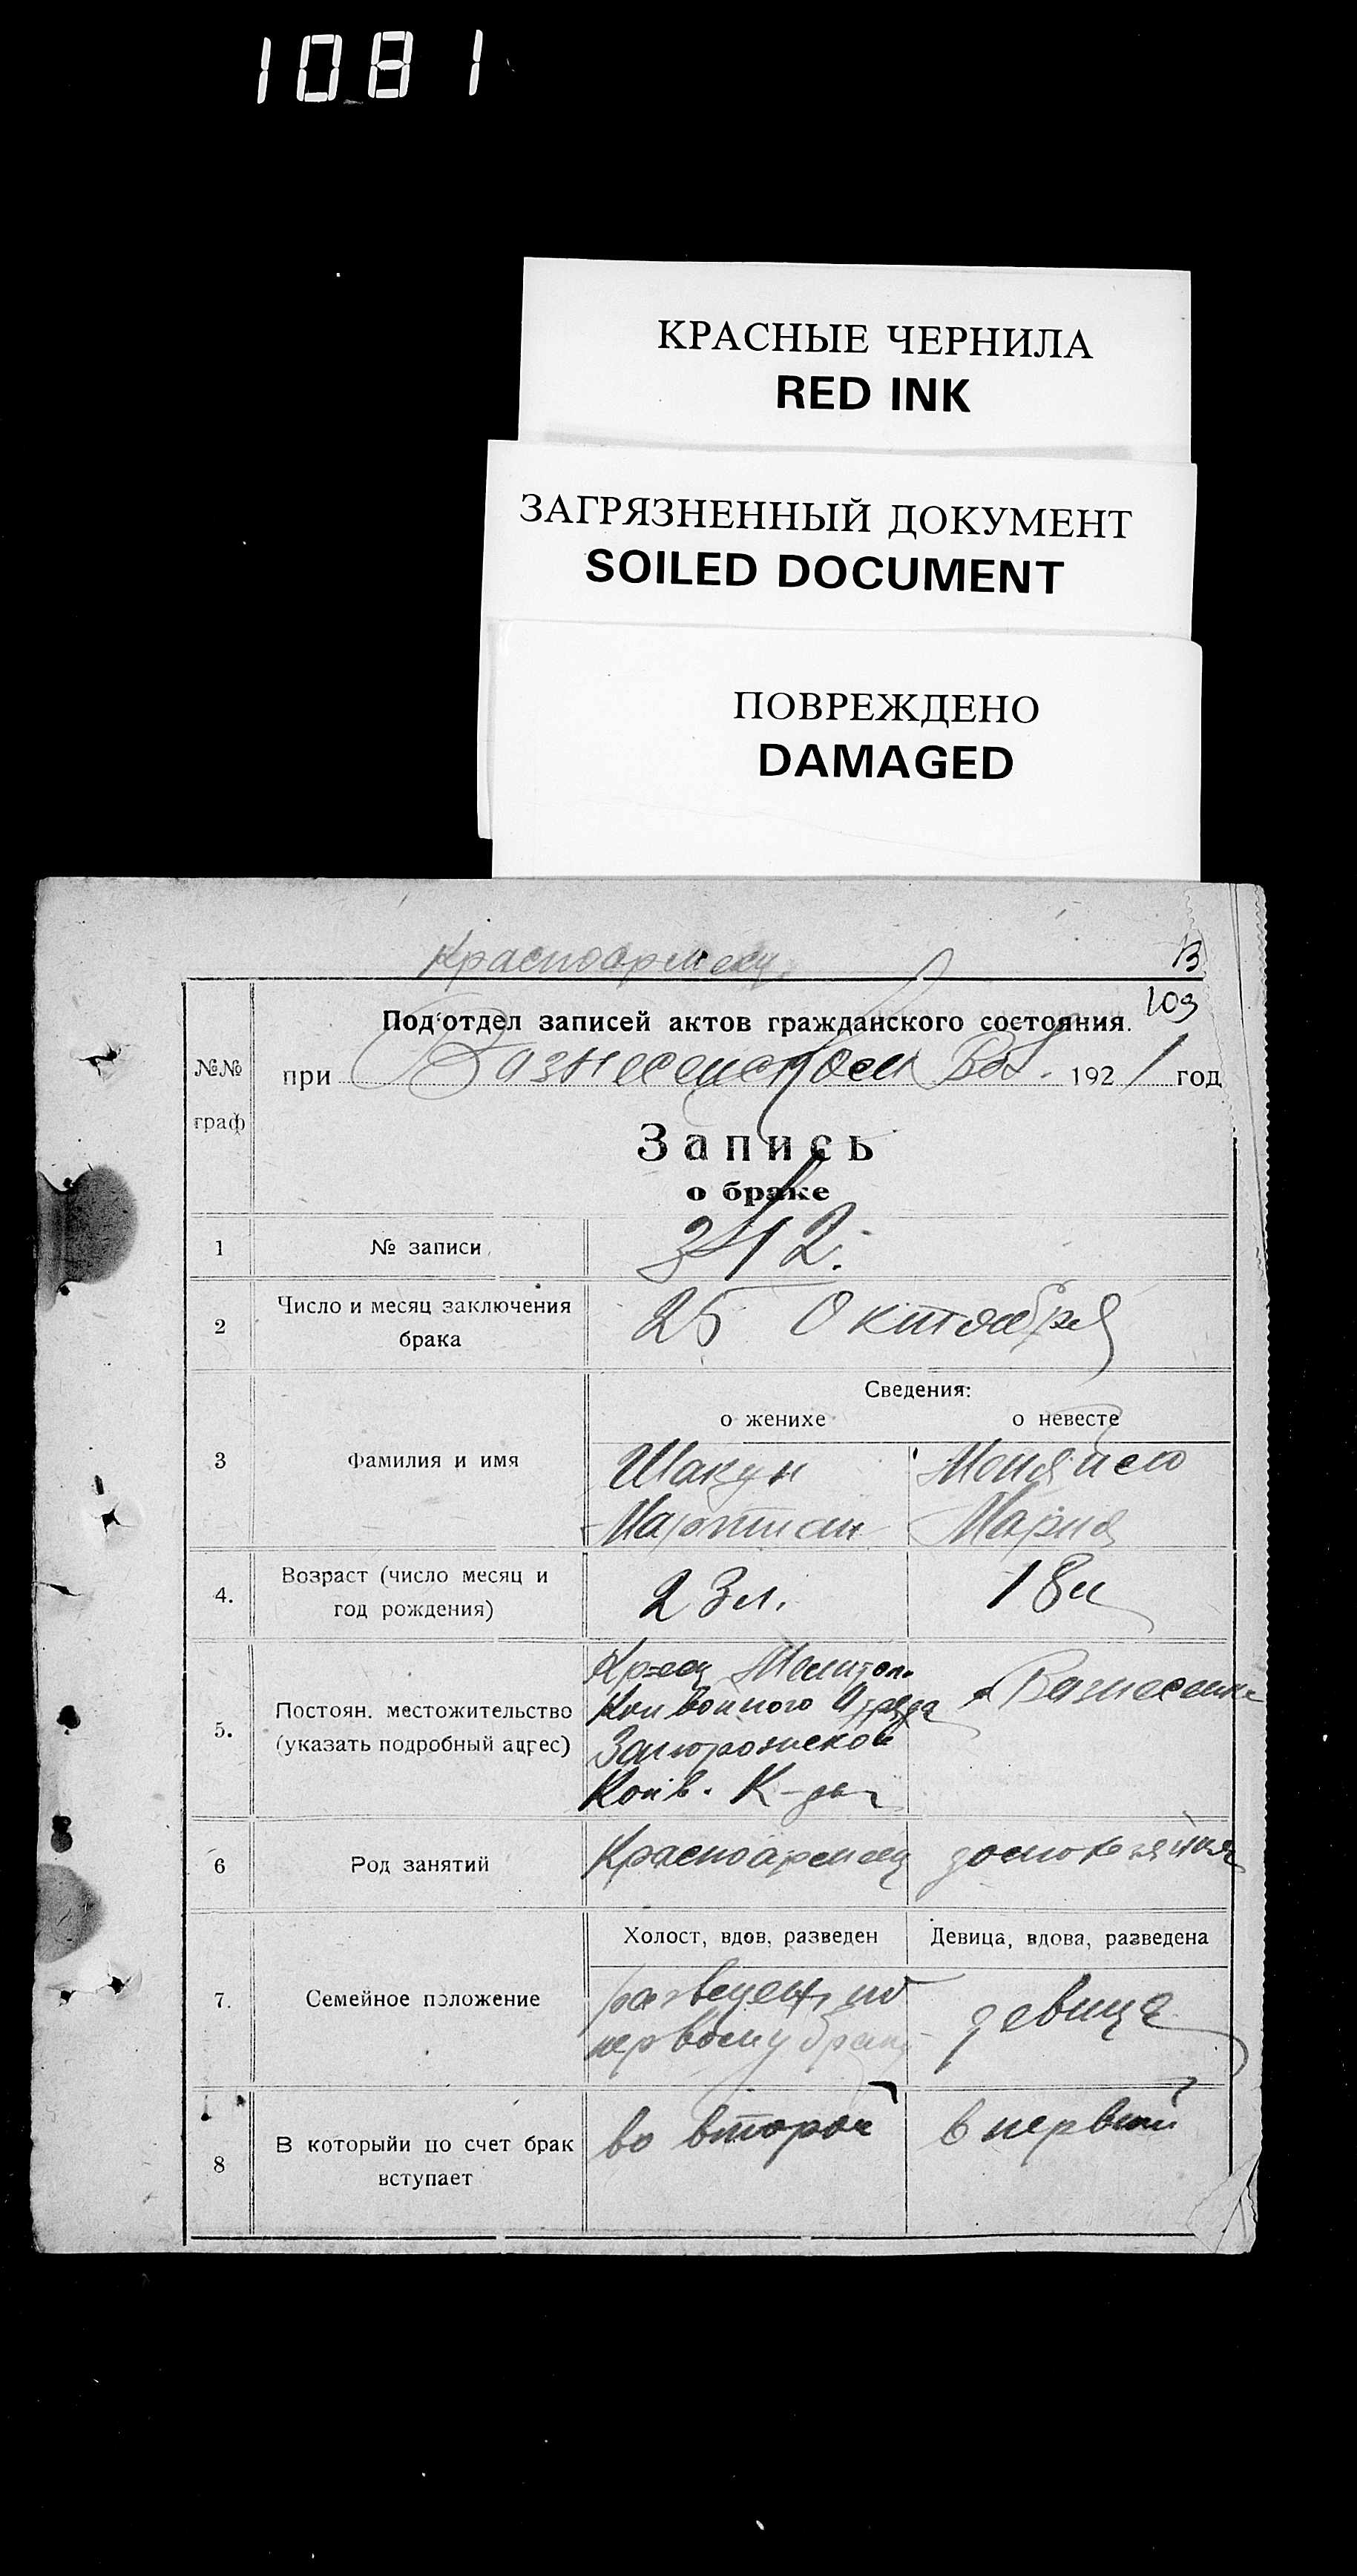 1081
КРАСНЫЕ ЧЕРНИЛА
RED INK
ЗАГРЯЗНЕННЫЙ ДОКУМЕНТ
SOILED DOCUMENT
ПОВРЕЖДЕНО
DAMAGED
Красноармеец
103
Под'отдел записей актов гражданского состояния.
№№ граф
при Вознесенском Вол. 1921 год
Запись
о браке
1 № записи 312.
2 Число и месяц заключения
брака
25 Октября
Сведения:
о женихе о невесте
3 Фамилия и имя
Шакун
Мартиан Мария
4. Возраст (число месяц и
год рождения)
23 л. 18 л
5. Постоян. местожительство
(указать подробный адрес)
Кр-ец Мелитоп.
Конвойного Отряда
Запорожской
Конв. К-ды
Вознесенка
6 Род занятий Красноармеец домохозяйка
Холост, вдов, разведен Девица, вдова, разведена
7. Семейное положение
разведен, по
первому браку
девица
8 В которыйи по счет брак
вступает
во второй в первый